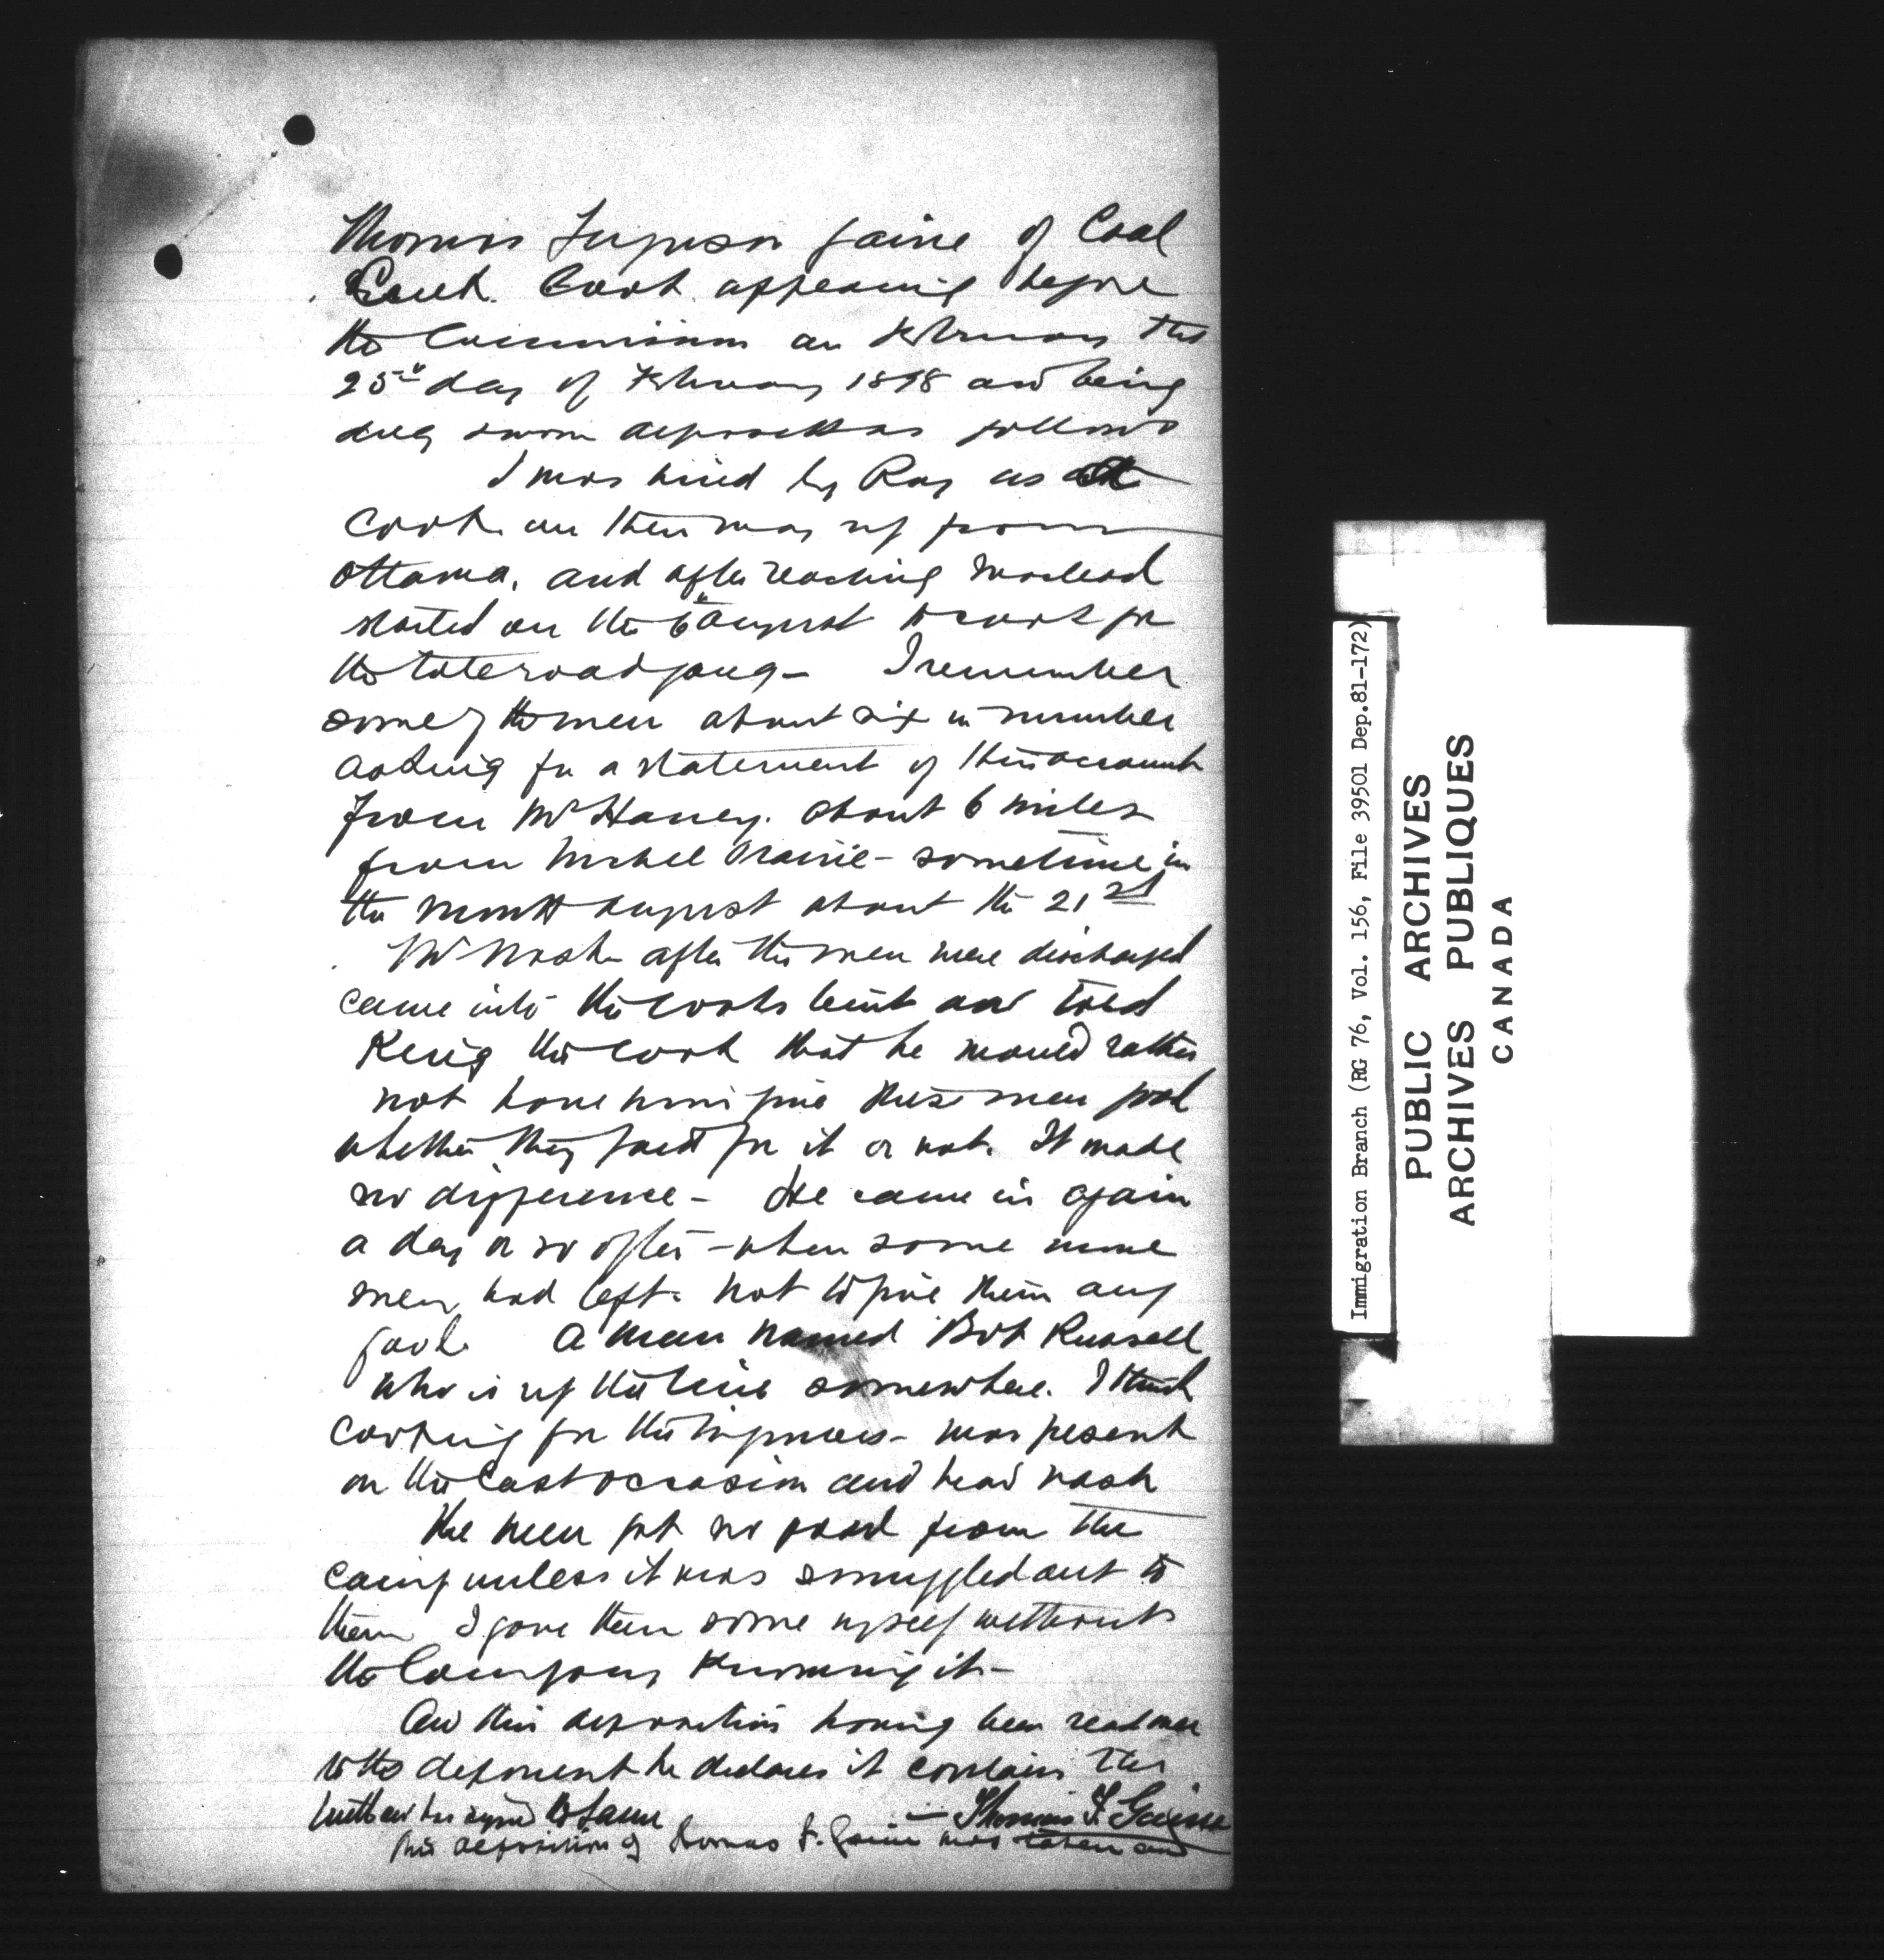 Thomas Ferguson Gaine of Coal
Creek. Cook. appearing before
the Commission on February the
25th day of February 1898 and being
duly sworn deposeth as follows
I was hired by Ray as a
Cook on their way up from
Ottawa. and after reaching Macleod
started on the 6th August to cook for
the tote road gang - I remember
some of the men about six in number
asking for a statement of their account
from Mr Haney. about 6 miles
from Michel Prairie - sometime in
the month August about the 21st
Mr Nash after the men were discharged
came into the cooks tent and told
King the cook that he would rather
not have him give these men food
whether they paid for it or not. It made
no difference - He came in again
a day or so after - when some more
men had left. not to give them any
food. A man named Bob Russell
who is up the line somewhere. I think
cooking for the Engineers - was present
on the last occasion and heard Nash
The men got no food from the
camp unless it was smuggled out to
them I gave them some myself without
the Company knowing it -
And this deposition having been read over
to the deponent he declares it contains the
truth and has signed the same - Thomas F. Gaine
This deposition of Thomas F. Gaine was taken and
Immigration Branch (RG 76, Vol. 156, File 39501 Dep.81-172)
PUBLIC ARCHIVES
ARCHIVES PUBLIQUES
CANADA